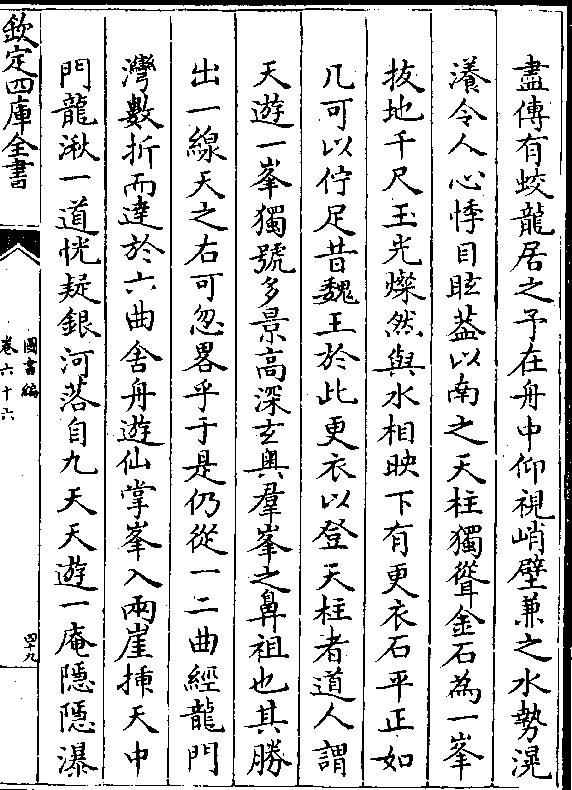 盡傳有蛟龍居之予在舟中仰視峭壁兼之水勢滉
瀁令人心悸目眩葢以南之天柱獨聳金石為一峯
拔地千尺玉光燦然與水相映下有更衣石平正如
几可以佇足昔魏王於此更衣以登天柱者道人謂
天遊一峯獨號多景高深玄奥羣峯之鼻祖也其勝
出一線天之右可忽畧乎于是仍從一二曲經龍門
灣數折而達於六曲舍舟遊仙掌峯入兩崖揷天中
門龍湫一道恍疑銀河落自九天天遊一庵隱隱瀑
欽定四庫全書
圖書編
卷六十六
四十九